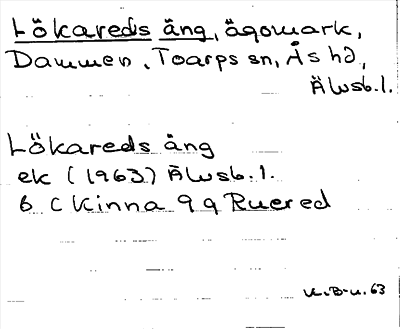 Lökareds äng, ägomark,
Dammen, Toarps sn, Ås hd,
Älvsb. l.
Lökareds äng
ek (1963) Älvsb. l.
6 C Kinna 9 g Ruered
63